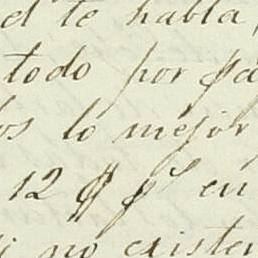 d te habla,
todo por
os lo mejor
12 $ en
no existen